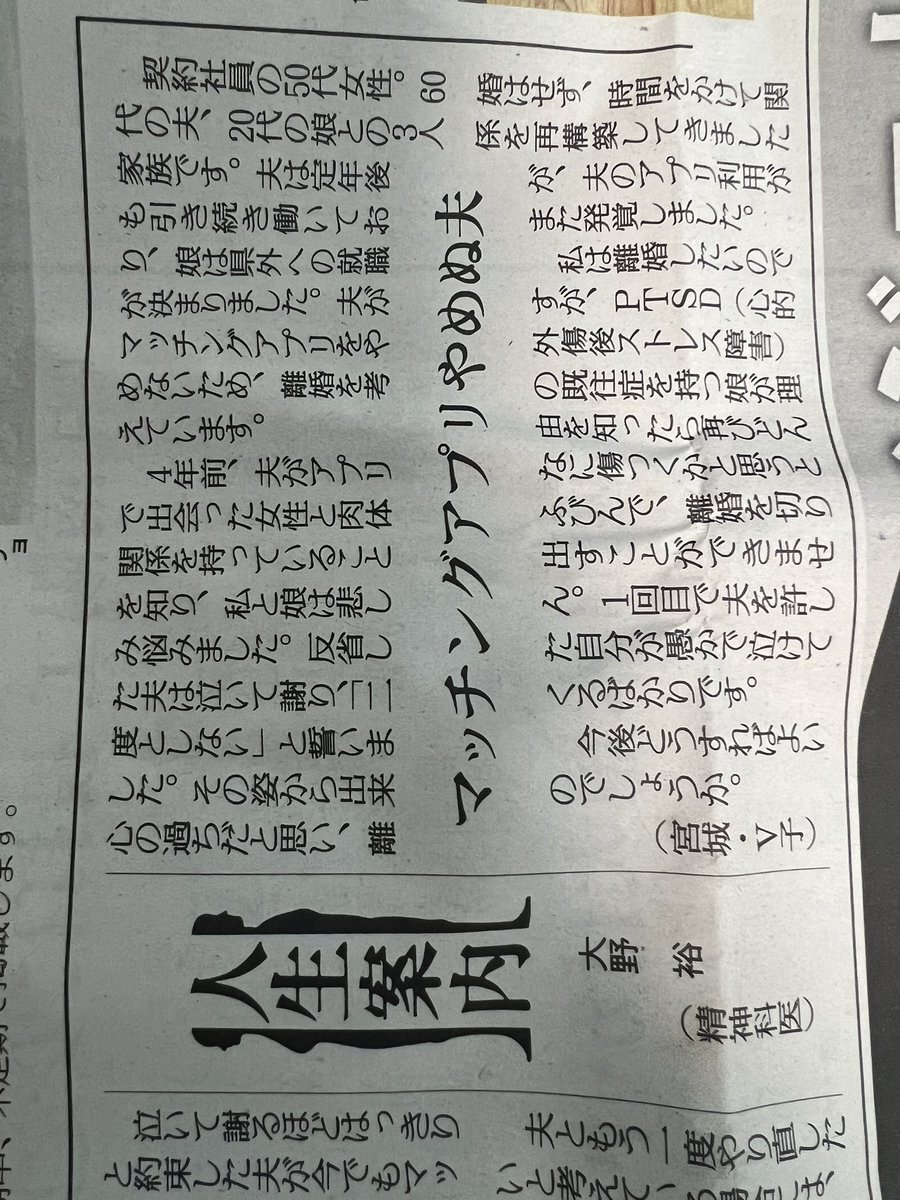 マッチングアプリやめぬ夫
契約社員の50代女性。60
代の夫、20代の娘との3人
家族です。夫は定年後
も引き続き働いてお
り、娘は県外への就職
が決まりました。夫が
マッチングアプリをや
めないため、離婚を考
えています。
4年前、夫がアプリ
で出会った女性と肉体
関係を持っていること
を知り、私と娘は悲し
み悩みました。反省し
た夫は泣いて謝り、「二
度としない」と誓いま
した。その姿から出来
心の過ちだと思い、離
婚はせず、時間をかけて関
係を再構築してきました
が、夫のアプリ利用が
また発覚しました。
私は離婚したいので
すが、PTSD(心的
外傷後ストレス障害)
の既往症を持つ娘が理
由を知ったら再びどん
なに傷つくかと思うと
ふびんで、離婚を切り
出すことができませ
ん。1回目で夫を許し
た自分が愚かで泣けて
くるばかりです。
今後どうすればよい
のでしょうか。
(宮城・V子)
人生案内
大野 裕
(精神科医)
泣いて謝るほどはっきり
と約束した夫が今でもマッ
夫ともう一度やり直した
いと考えている場合には、